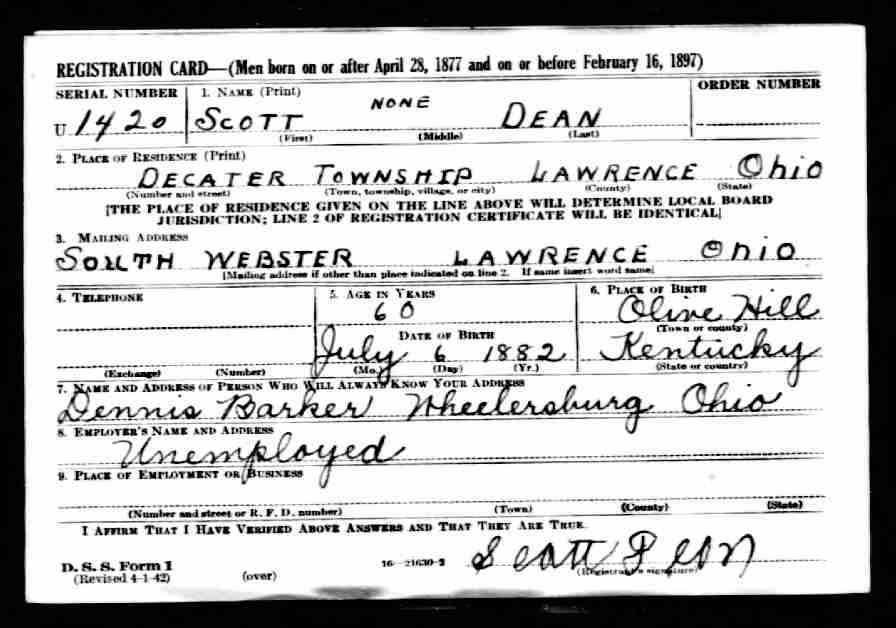 REGISTRATION CARD—(Men born on or after April 28, 1877 and on or before February 16, 1897)
SERIAL NUMBER 1. NAME (Print) ORDER NUMBER
U 1420 SCOTT NONE DEAN
(First) (Middle) (Last)
2. PLACE OF RESIDENCE (Print)
DECATER TOWNSHIP LAWRENCE Ohio
(Number and street) (Town, township, village, or city) (County) (State)
[THE PLACE OF RESIDENCE GIVEN ON THE LINE ABOVE WILL DETERMINE LOCAL BOARD
JURISDICTION; LINE 2 OF REGISTRATION CERTIFICATE WILL BE IDENTICAL]
3. MAILING ADDRESS
SOUTH WEBSTER LAWRENCE OHIO
[Mailing address if other than place indicated on line 2. If same insert word same]
4. TELEPHONE 5. AGE IN YEARS 6. PLACE OF BIRTH
60 Olive Hill
DATE OF BIRTH (Town or county)
July 6 1882 Kentucky
(Exchange) (Number) (Mo.) (Day) (Yr.) (State or country)
7. NAME AND ADDRESS OF PERSON WHO WILL ALWAYS KNOW YOUR ADDRESS
Dennis Barker Wheelersburg Ohio
8. EMPLOYER'S NAME AND ADDRESS
Unemployed
9. PLACE OF EMPLOYMENT OR BUSINESS
(Number and street or R. F. D. number) (Town) (County) (State)
I AFFIRM THAT I HAVE VERIFIED ABOVE ANSWERS AND THAT THEY ARE TRUE.
D. S. S. Form 1 16—21630-2 Scott
(Revised 4-1-42) (over) (Registrant's signature)